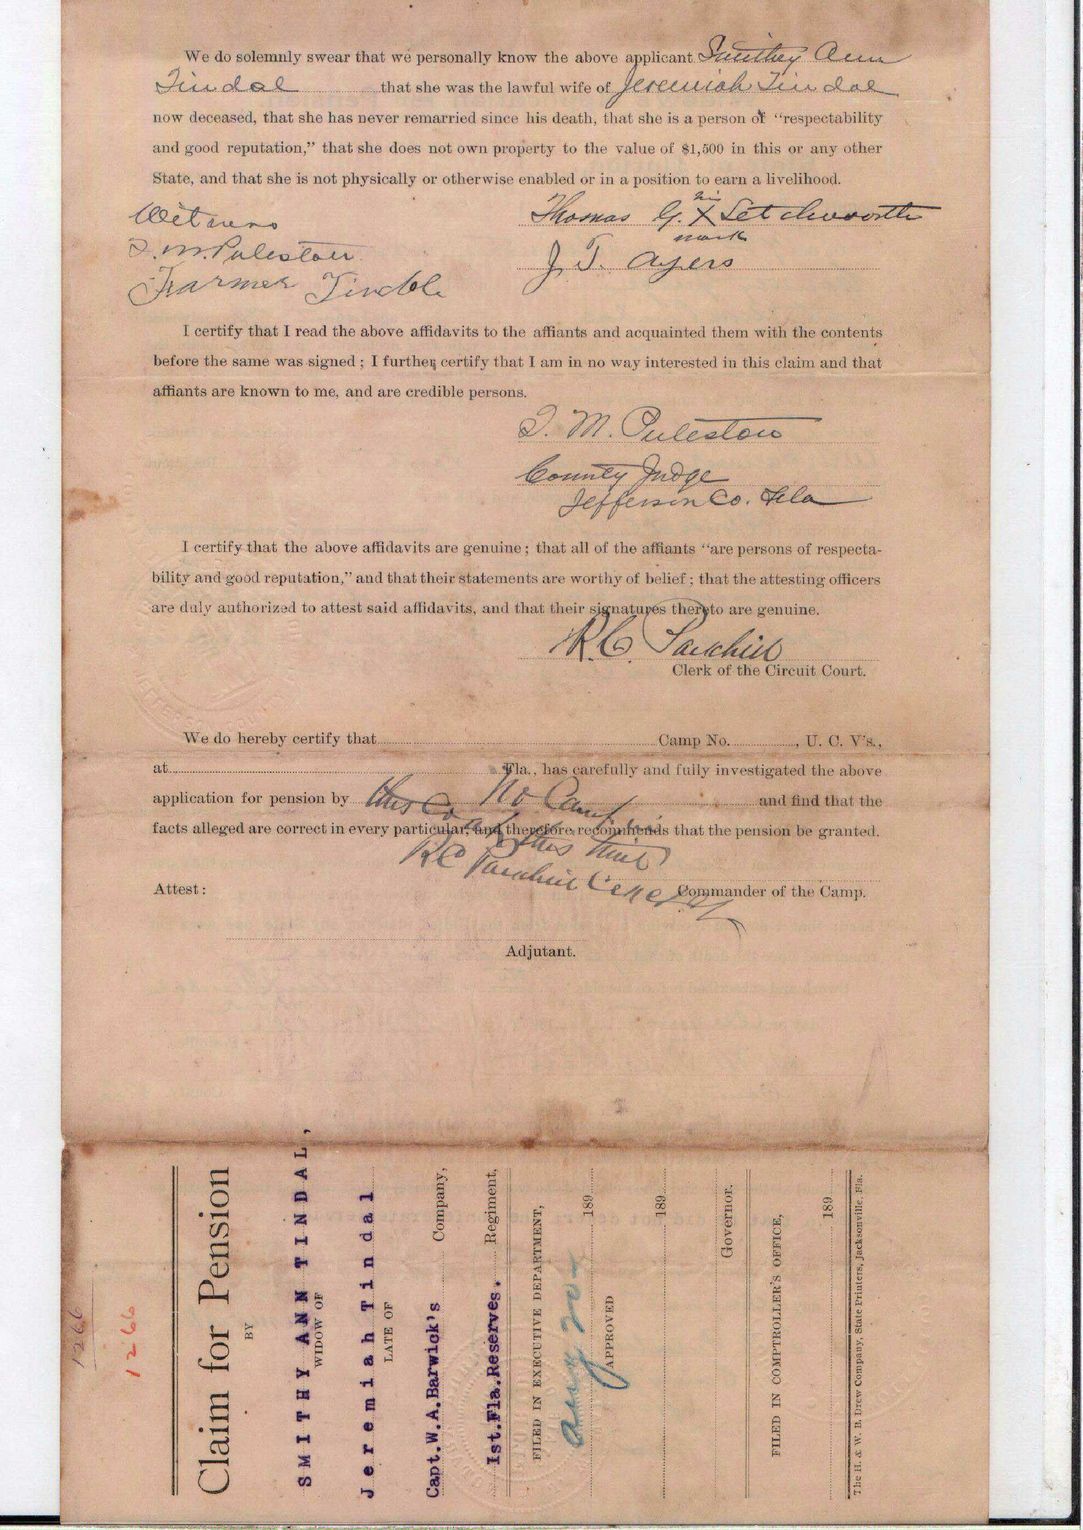 We do solemnly swear that we personally know the above applicant Smithy Ann
Tindal that she was the lawful wife of Jeremiah Tindal
now deceased, that she has never remarried since his death, that she is a person of "respectability
and good reputation," that she does not own property to the value of $1,500 in this or any other
State, and that she is not physically or otherwise enabled or in a position to earn a livelihood.
Witness
T. M. Puleston
Farmer Tindle
his
Thomas G. X Letchworth
mark
J. T. Ayers
I certify that I read the above affidavits to the affiants and acquainted them with the contents
before the same was signed; I further certify that I am in no way interested in this claim and that
affiants are known to me, and are credible persons.
T. M. Puleston
County Judge
Jefferson Co. Fla
I certify that the above affidavits are genuine; that all of the affiants "are persons of respecta-
bility and good reputation," and that their statements are worthy of belief; that the attesting officers
are duly authorized to attest said affidavits, and that their signatures thereto are genuine.
R. C. Parkhill
Clerk of the Circuit Court.
We do hereby certify that Camp No. , U. C. V's.,
at Fla., has carefully and fully investigated the above
application for pension by and find that the
No Camp in
this Co at this time
facts alleged are correct in every particular, and therefore recommends that the pension be granted.
R C Parkhill Clerk
Commander of the Camp.
Attest:
Adjutant.
1266
1266
Claim for Pension
BY
SMITHY ANN TINDAL,
WIDOW OF
Jeremiah Tindal
LATE OF
Capt.W.A.Barwick's Company,
1st.Fla.Reserves. Regiment,
FILED IN EXECUTIVE DEPARTMENT,
Aug 20 189
APPROVED
189
Governor.
FILED IN COMPTROLLER'S OFFICE,
189
The H. & W. B. Drew Company, State Printers, Jacksonville, Fla.